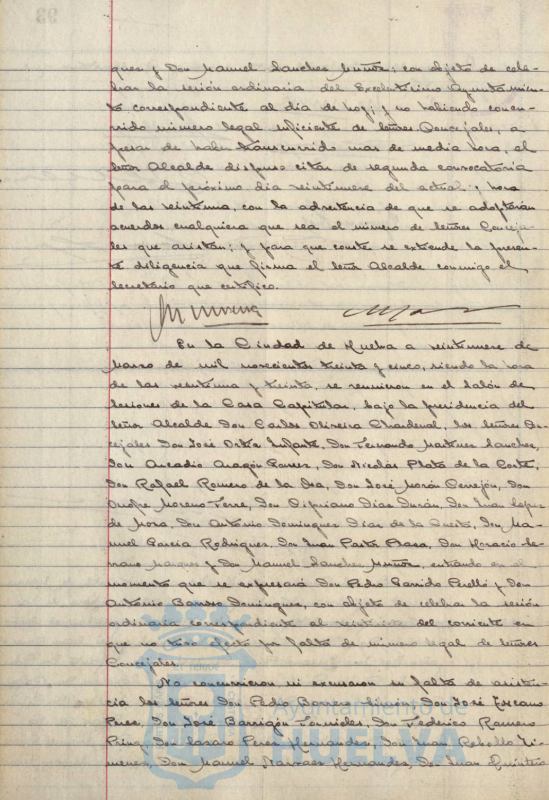 quez y Don Manuel Sanchez Muñoz; con objeto de cele-
brar la sesión ordinaria del Excelentísimo Ayuntamien-
to correspondiente al día de hoy; y no habiendo concu-
rrido número legal suficiente de señores Concejales, a
pesar de haber transcurrido mas de media hora, el
señor Alcalde dispuso citar de segunda convocatoria
para el próximo día veintinueve del actual y hora
de las veintiuna, con la advertencia de que se adoptarán
acuerdos cualquiera que sea el número de señores Conceja-
les que asistan; y para que conste se extiende la presen-
te diligencia que firma el señor Alcalde conmigo el
Secretario que certifico.
En la Ciudad de Huelva a veintinueve de
Marzo de mil novecientos treinta y cinco, siendo la hora
de las veintiuna y treinta, se reunieron en el salón de
sesiones de la Casa Capitular, bajo la presidencia del
señor Alcalde Don Carlos Oliveira Chardenal, los señores Con-
cejales Don José Ortiz Infante, Don Fernando Martinez Sanchez,
Don Arcadio Aragón Gomez, Don Nicolás Plata de la Corte,
Don Rafael Romero de la Osa, Don José Morón Cerrejón, Don
Onofre Moreno Don Cipriano Diaz Durán, Don Juan Lopez
de Mora, Don Antonio Dominguez Diaz de la Don Ma-
nuel Garcia Rodriguez, Don Juan Don Horacio Se-
rrano Marquez y Don Manuel Sanchez Muñoz, entrando en el
momento que se expresará Don Pedro Garrido Perelló y Don
Antonio Barroso Dominguez, con objeto de celebrar la sesión
ordinaria correspondiente al del corriente en
que no tuvo efecto por falta de número legal de señores
Concejales.
No concurrieron ni excusaron su falta de asisten-
cia los señores Don Pedro Borrero Don José Toscano
Perez, Don José Barrigón Don Federico Romero
Don Lazaro Perez Hernandez, Don Juan Rebollo Ji-
menez, Don Manuel Narvaez Hernandez, Don Juan Quintero
Ayuntamiento de
HUELVA